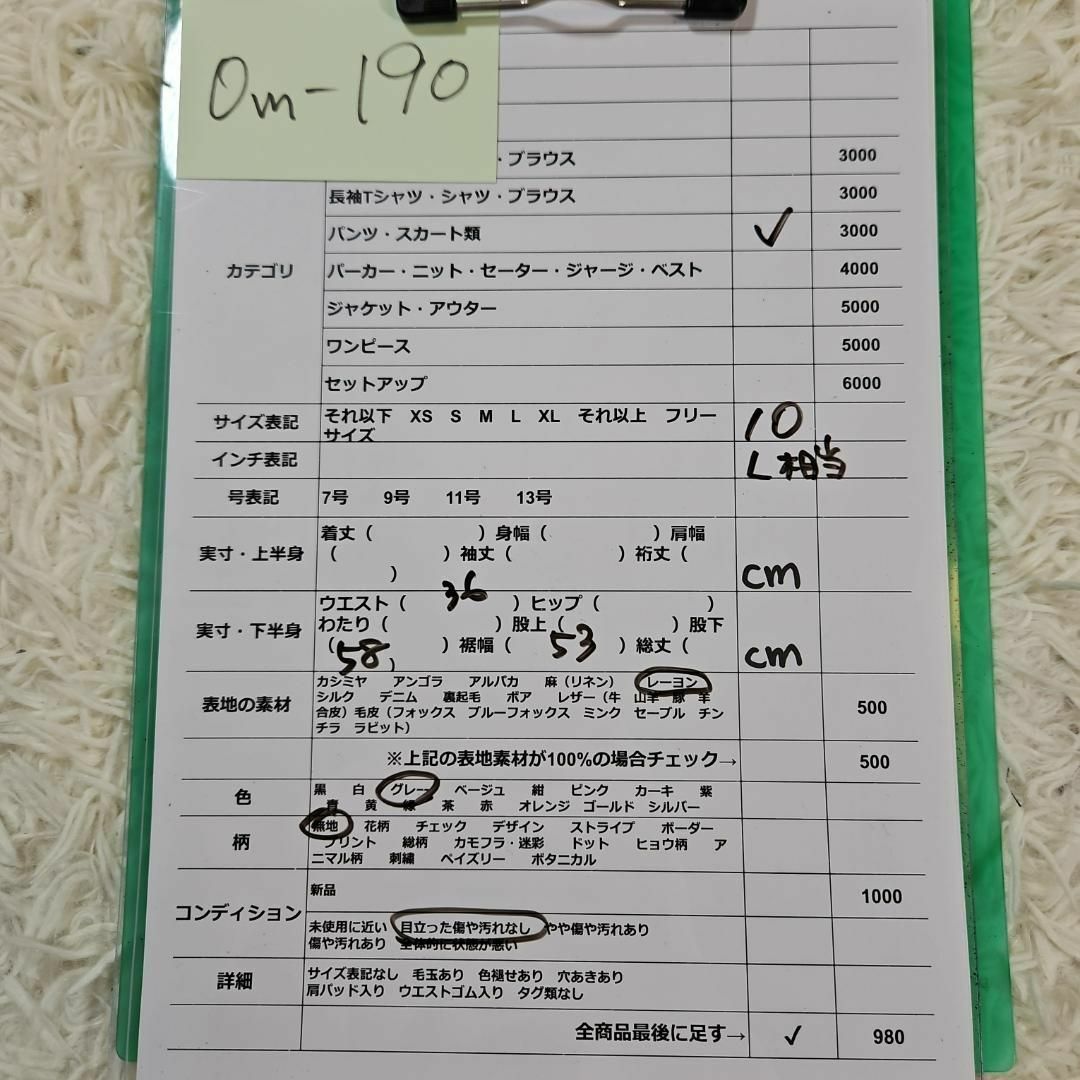 Om-190
・ブラウス 3000
長袖Tシャツ・シャツ・ブラウス 3000
パンツ・スカート類 ✓ 3000
カテゴリ
パーカー・ニット・セーター・ジャージ・ベスト 4000
ジャケット・アウター 5000
ワンピース 5000
セットアップ 6000
サイズ表記 それ以下 XS S M L XL それ以上 フリー
サイズ
10
インチ表記 L相当
号表記 7号 9号 11号 13号
実寸・上半身
着丈（ ）身幅（ ）肩幅
（ ）袖丈（ ）裄丈（
） cm
実寸・下半身
ウエスト（ 36 ）ヒップ（ ）
わたり（ ）股上（ ）股下
（ 58 ）裾幅（ 53 ）総丈（
） cm
表地の素材
カシミヤ アンゴラ アルパカ 麻（リネン） レーヨン
シルク デニム 裏起毛 ボア レザー（牛 山羊 豚 羊
合皮）毛皮（フォックス ブルーフォックス ミンク セーブル チン
チラ ラビット）
500
※上記の表地素材が100%の場合チェック→ 500
色
黒 白 グレー ベージュ 紺 ピンク カーキ 紫
青 黄 緑 茶 赤 オレンジ ゴールド シルバー
柄
無地 花柄 チェック デザイン ストライプ ボーダー
プリント 総柄 カモフラ・迷彩 ドット ヒョウ柄 ア
ニマル柄 刺繍 ペイズリー ボタニカル
コンディション
新品 1000
未使用に近い 目立った傷や汚れなし やや傷や汚れあり
傷や汚れあり 全体的に状態が悪い
詳細
サイズ表記なし 毛玉あり 色褪せあり 穴あきあり
肩パッド入り ウエストゴム入り タグ類なし
全商品最後に足す→ ✓ 980